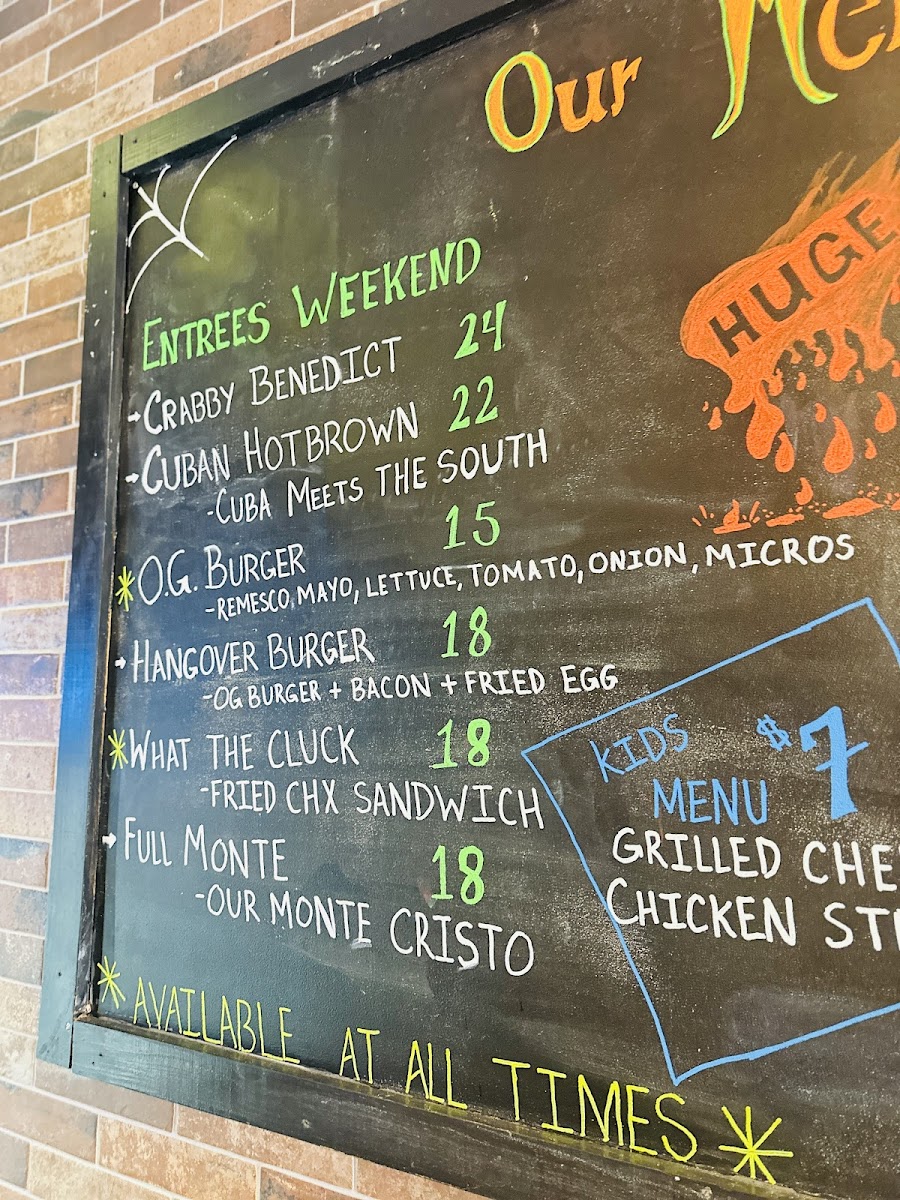 Our
HUGE
ENTREES WEEKEND
→CRABBY BENEDICT 24
→CUBAN HOTBROWN 22
-CUBA MEETS THE SOUTH
*O.G. BURGER 15
-REMESCO, MAYO, LETTUCE, TOMATO, ONION, MICROS
→HANGOVER BURGER 18
-OG BURGER + BACON + FRIED EGG
*WHAT THE CLUCK 18
-FRIED CHX SANDWICH
→FULL MONTE 18
-OUR MONTE CRISTO
*AVAILABLE AT ALL TIMES*
KIDS $7
MENU
GRILLED
CHICKEN